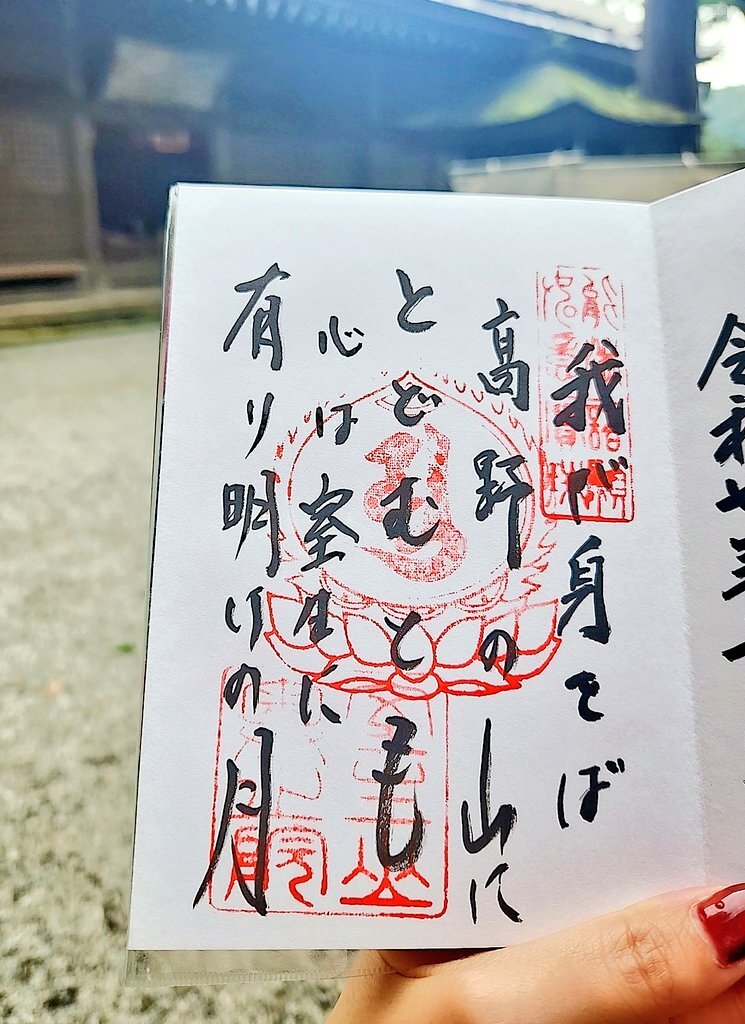 令和七年
我が身をば
高野の山に
とどむとも
心は室生に
有り明けの月